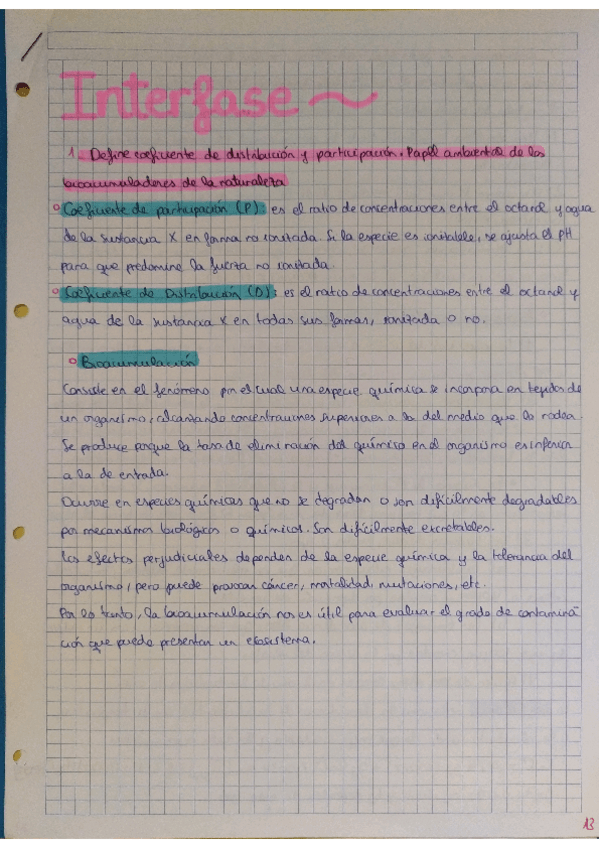 Interfase ~
1. Define coeficiente de distribución y participación. Papel ambiental de los
bioacumuladores de la naturaleza
Coeficiente de participación (P): es el ratio de concentraciones entre el octanol y agua
de la sustancia X en forma no ionizada. Si la especie es ionizable, se ajusta el pH
para que predomine la fuerza no ionizada.
Coeficiente de Distribución (D): es el ratio de concentraciones entre el octanol y
agua de la sustancia X en todas sus formas, ionizada o no.
Bioacumulación
Consiste en el fenómeno por el cual una especie química se incorpora en tejidos de
un organismo, alcanzando concentraciones superiores a la del medio que lo rodea.
Se produce porque la tasa de eliminación del químico en el organismo es inferior
a la de entrada.
Ocurre en especies químicas que no se degradan o son difícilmente degradables
por mecanismos biológicos o químicos. Son difícilmente excretables.
Los efectos perjudiciales dependen de la especie química y la tolerancia del
organismo, pero puede provocar cáncer, mortalidad, mutaciones, etc.
Por lo tanto, la bioacumulación nos es útil para evaluar el grado de contamina
ción que puede presentar un ecosistema.
13